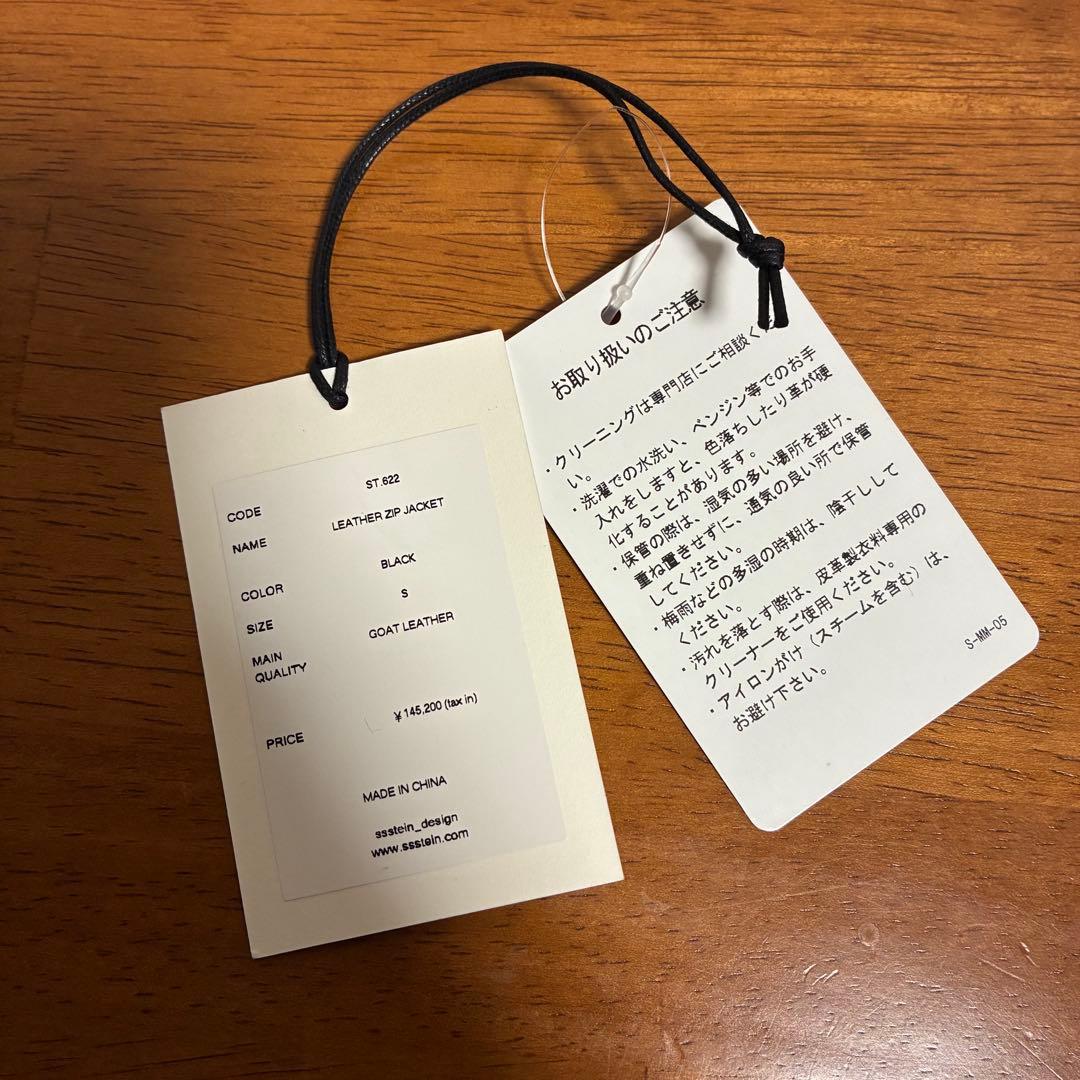 CODE ST.622
NAME LEATHER ZIP JACKET
COLOR BLACK
SIZE S
MAIN QUALITY GOAT LEATHER
PRICE ¥145,200 (tax in)
MADE IN CHINA
ssstein_design
www.ssstein.com
お取り扱いのご注意
・クリーニングは専門店にご相談くだ
い。
・洗濯での水洗い、ベンジン等でのお手
入れをしますと、色落ちしたり革が硬
化することがあります。
・保管の際は、湿気の多い場所を避け、
重ね置きせずに、通気の良い所で保管
してください。
・梅雨などの多湿の時期は、陰干しして
ください。
・汚れを落とす際は、皮革製衣料専用の
クリーナーをご使用ください。
・アイロンがけ（スチームを含む）は、
お避け下さい。
S-MM-05